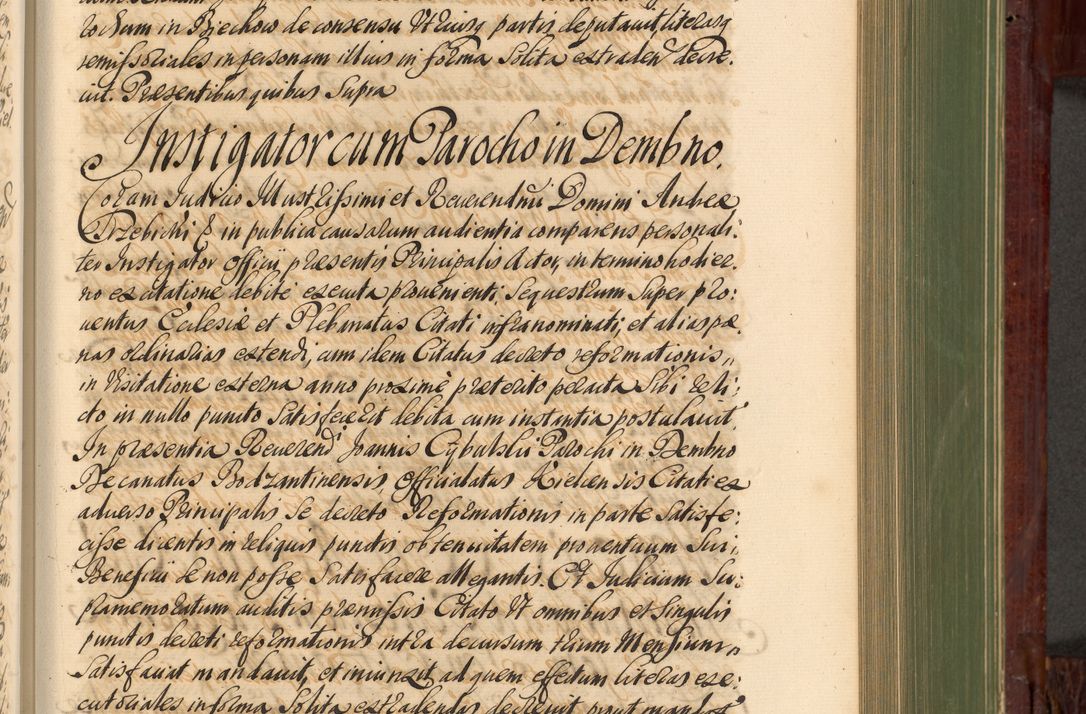 locutum in Biechow de consensu Utriusq partis deputavit, literasq
remissoriales in personam illius in forma Solita estraden͂ decre-
uit. Præsentibus quibus Supra
Instigator cum Parocho in Dembno.
Coram Iudicio Illustrissimi et Reuerendmi Domini Andreæ
Trzebicki & in publica causarum audientia comparens personali:
ter Instigator Officij præsentis Principalis Actor, in termino hodier-
no ex citatione debite executa prouenienti, Sequestrum Super pro:
uentus Ecclesiæ et Plebanatus Citati infranominati, et alias pæ-
nas ordinarias extendi, cum idem Citatus decreto reformationis,,
in Visitatione externa anno proxime præterito peracta Sibi reli:
cto in nullo puncto Satisfecerit debita cum instantia postulauit.
In præsentia Reuerend Joannis Cybulskii Parochi in Dembno
Decanatus Bodzantinensis, Officialatus Kielcensis Citati ex
aduerso Principalis Se decreto Reformationis in parte Satisfe:
cisse dicentis in reliquis punctis ob tenuitatem prouentuum Sui,
Beneficii Se non posse Satisfacere allegantis. Et Iudicium Su:
pramemoratum auditis præmissis Citato Ut omnibus et Singulis
punctis decreti reformationis intra decursum trium Mensium,,
Satisfaciat mandauit, et iniunxit ad quem effectum literas exe:
cutoriales in forma Solita estradendas decreuit prout mandat